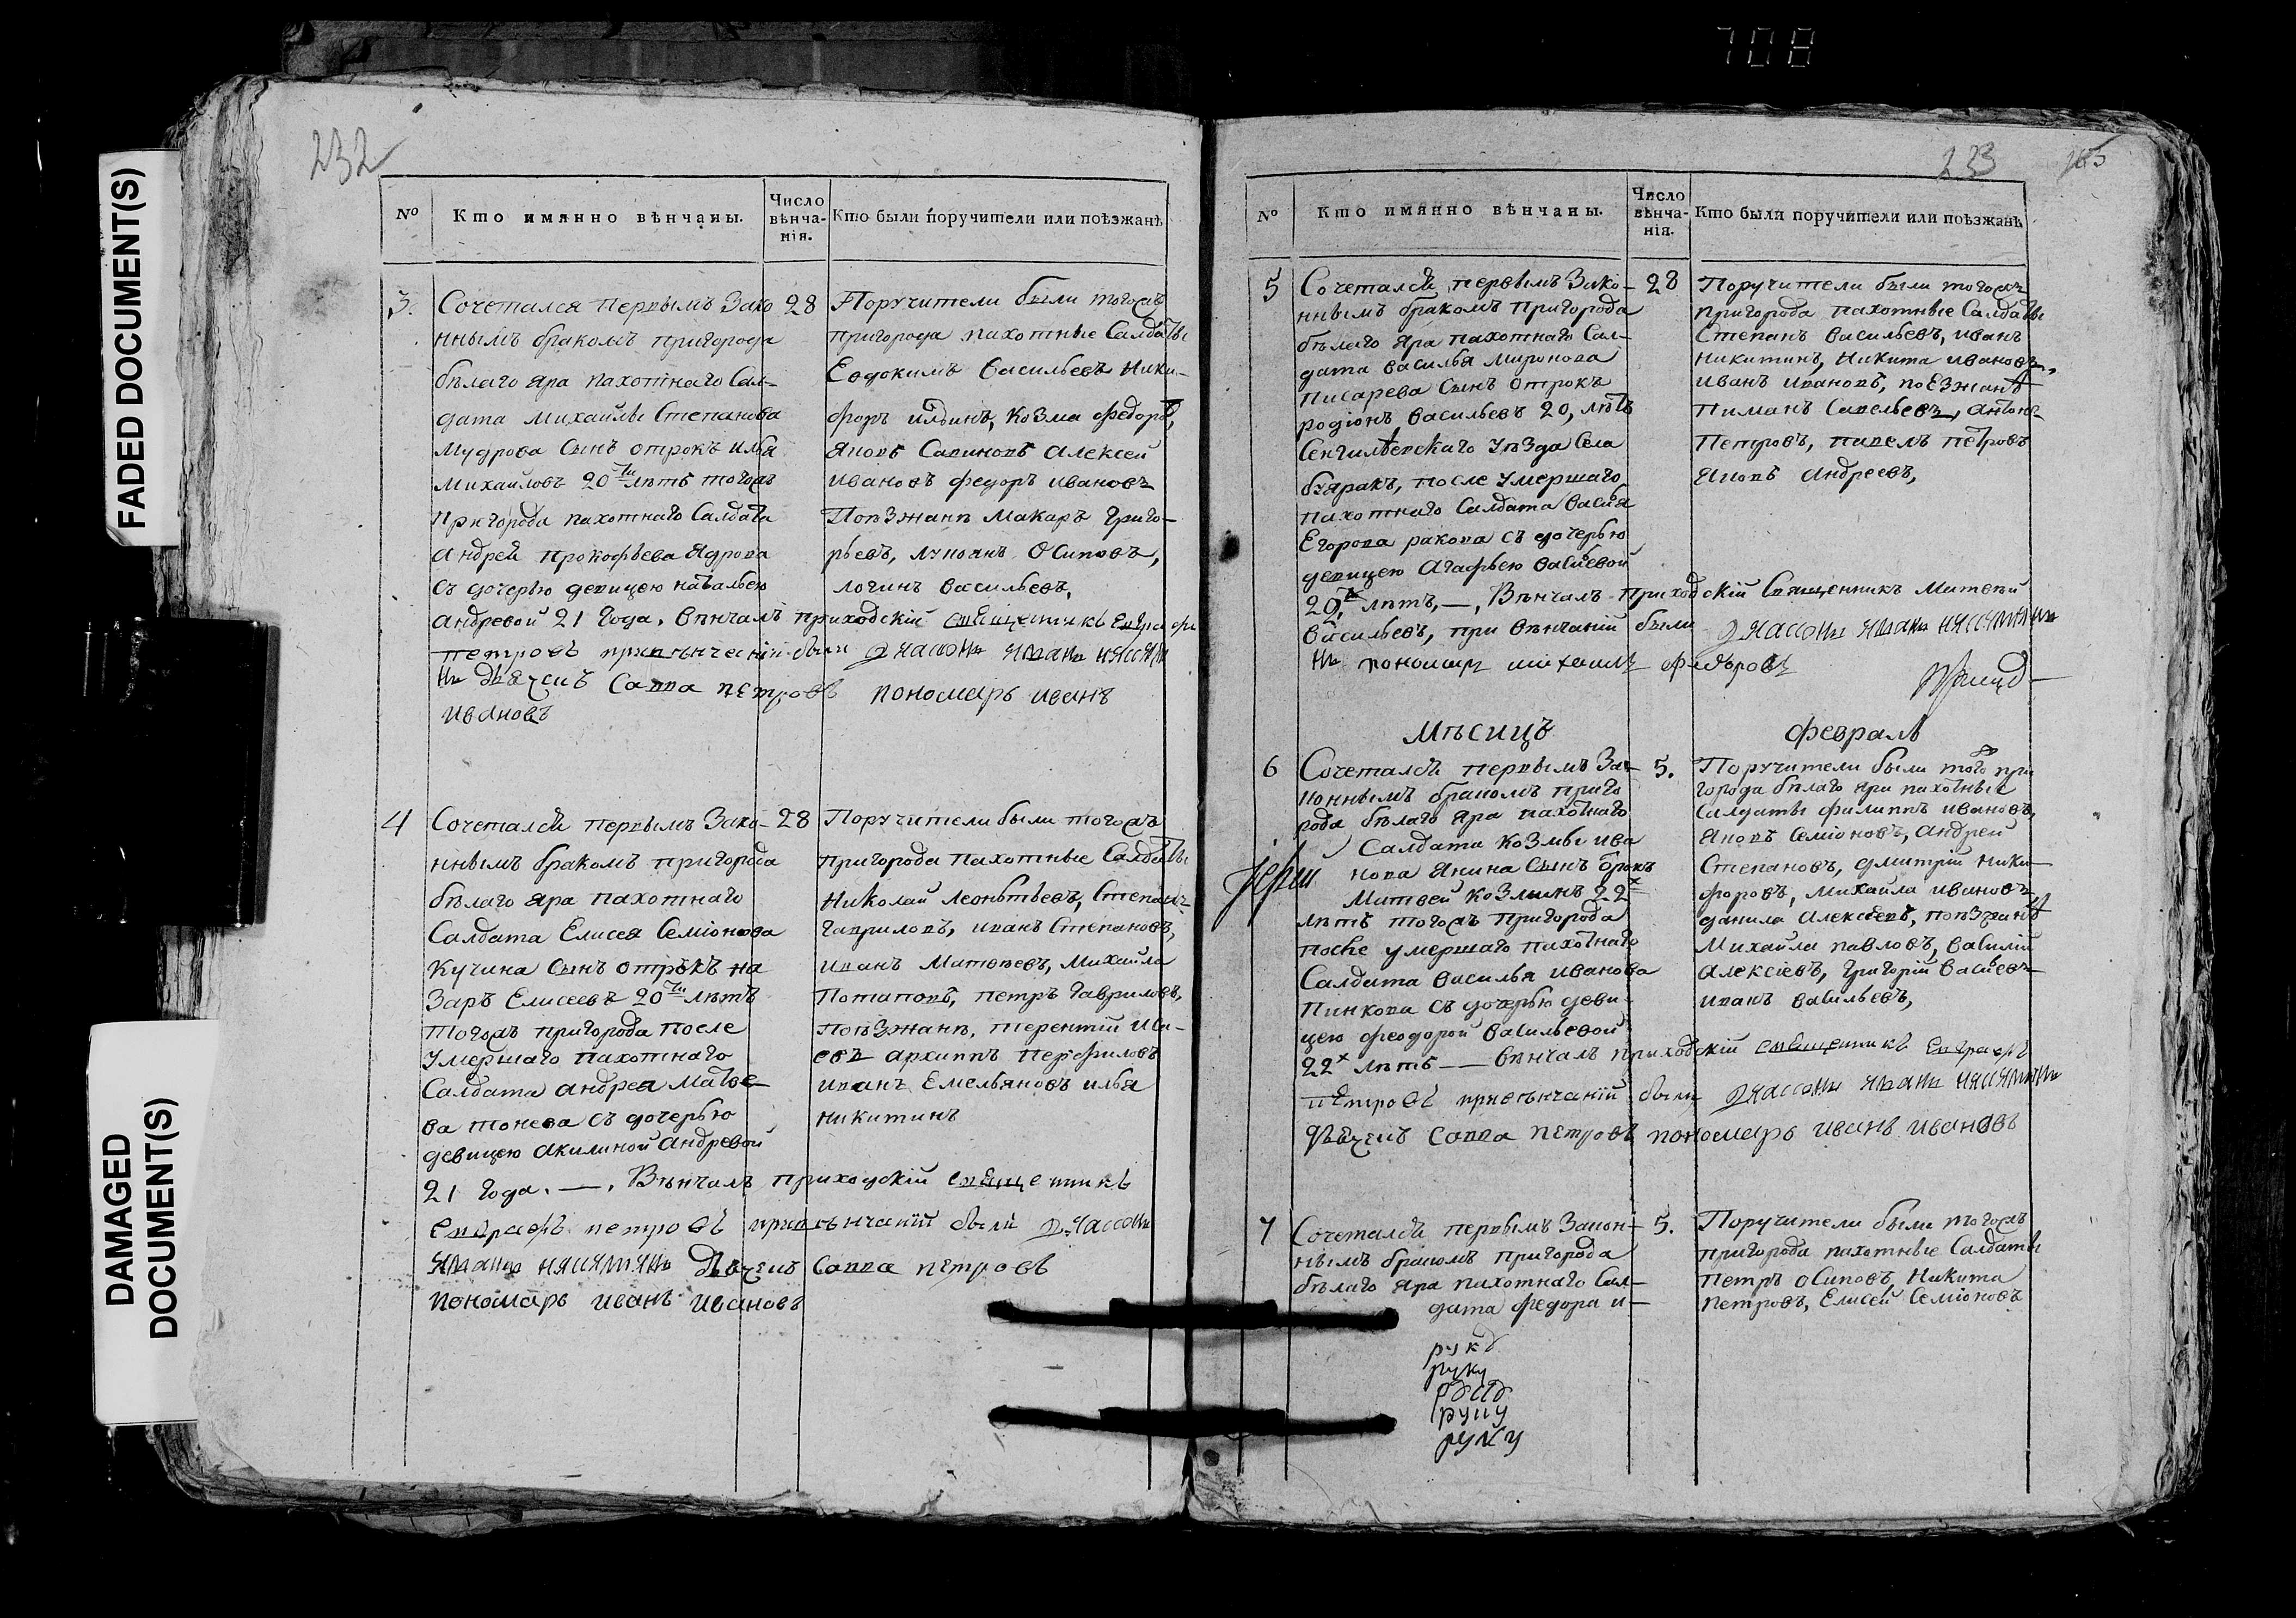 708
FADED DOCUMENT(S)
DAMAGED
DOCUMENT(S)
232
№
Кто имянно вѣнчаны.
Число
вѣнча-
нія.
Кто были поручители или поѣзжанѣ
3.
Сочетался первымъ Зако
ннымъ бракомъ пригорода
бѣлаго Яра пахотнаго Сал-
дата михайлы Степанова
мудрова Сынъ отрокъ илья
михайловъ 20ти лѣтъ тогожъ
пригорода пахотнаго Салдата
андрея прокофьева Ядрова
съ дочерью девицею натальею
андревой 21 года, вѣнчалъ приходскій священникъ
петровъ при вѣнчаніи были диаконъ иванъ
дьячекъ Савва петровъ пономарь иванъ
ивановъ
28
Поручители были тогожъ
пригорода пахотные Салдаты
Евдокимъ Васильевъ ники-
форъ ильинъ, козма федоръ,
Яковъ Савиновъ алексей
ивановъ федоръ ивановъ
Поѣзжанѣ макаръ григо-
рьевъ, лукоянъ Осиповъ,
логинъ васильевъ,
4
Сочетался первымъ Зако-
ннымъ бракомъ пригорода
бѣлаго яра пахотнаго
Салдата Елисея Семіонова
кучина Сынъ отрокъ на
заръ Елисеевъ 20ти лѣтъ
тогожъ пригорода после
умершаго пахотнаго
Салдата андрея матве-
ва тонева съ дочерью
девицею акилиной андревой
21 года. —. Вѣнчалъ приходскій священникъ
Евграфъ петровъ при вѣнчаніи были диаконъ
иванъ дьячекъ Савва петровъ
пономарь иванъ ивановъ
28
Поручители были тогожъ
пригорода пахотные Салдаты
николай леонтьевъ, Степанъ
гавриловъ, иванъ Степановъ,
иванъ матвеевъ, михайла
Потаповъ, петръ гавриловъ,
поѣзжанѣ, терентій ива-
евъ архиппъ перфиловъ
иванъ Емельяновъ илья
никитинъ
233
№
Кто имянно вѣнчаны.
Число
вѣнча-
нія.
Кто были поручители или поѣзжанѣ
5
Сочетался первымъ Зако-
ннымъ бракомъ пригорода
бѣлаго Яра пахотнаго Сал-
дата василья миронова
писарева Сынъ отрокъ
родіонъ васильевъ 20, лѣтъ
Сенгилѣевскаго уѣзда Села
буяракъ, после умершаго
пахотнаго Салдата василья
Егорова ракова съ дочерью
девицею агафьею василевой
20, лѣтъ, —, Вѣнчалъ приходскій Священникъ матвѣй
васильевъ, при вѣнчаніи были диаконъ иванъ
пономарь михаилъ федоровъ
28
Поручители были тогожъ
пригорода пахотные Салдаты
Степанъ васильевъ, иванъ
никитинъ, никита ивановъ,
иванъ ивановъ, поѣзжанѣ
Пиманъ Савельевъ, антонъ
Петровъ, павелъ петровъ
Яковъ андреевъ,
мѣсицъ февраль
6
Сочетался первымъ За-
коннымъ бракомъ приго
рода бѣлаго Яра пахотнаго
Салдата козмы ива
нова Янина Сынъ отрокъ
матвей козминъ 22х
лѣтъ тогожъ пригорода
после умершаго пахотнаго
Салдата василья иванова
Пинкова съ дочерью деви-
цею феодорой васильевой
22х лѣтъ — вѣнчалъ приходскій священникъ Евграфъ
петровъ при вѣнчаніи были диаконъ иванъ
дьячекъ Савва петровъ пономарь иванъ ивановъ
5.
Поручители были того при
города бѣлаго яра пахотные
Салдаты филиппъ ивановъ,
Яковъ Семіоновъ, андрей
Степановъ, дмитрій ники-
форовъ, михайла ивановъ
данила алексѣевъ, поѣзжанѣ
михайла павловъ, василій
алексіевъ, григорій васильевъ
иванъ васильевъ,
7
Сочетался первымъ Закон-
нымъ бракомъ пригорода
бѣлаго яра пахотнаго Сал-
дата федора и-
5.
Поручители были тогожъ
пригорода пахотные Салдаты
петръ осиповъ, никита
петровъ, Елисей Семіоновъ
руку
руку
руку